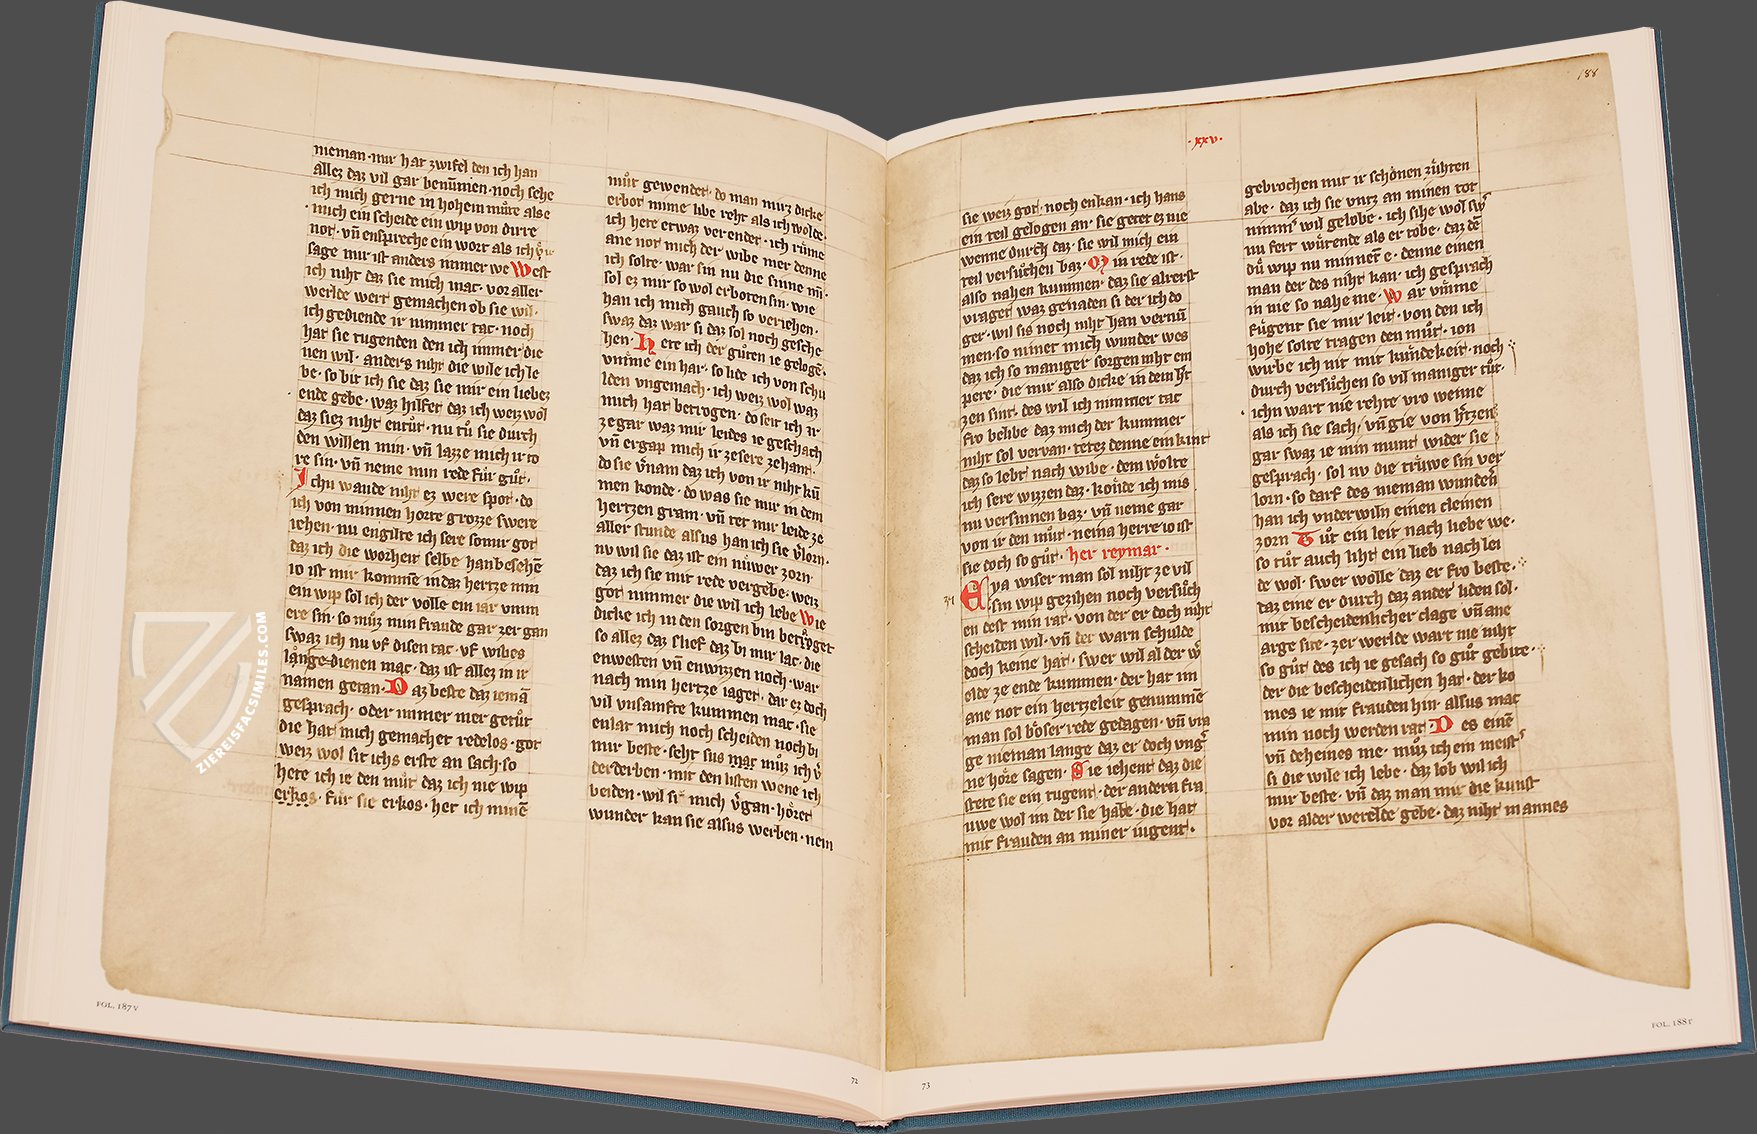 nieman·mir hat zwifel den ich han
allez daz vil gar benūmen·noch sehe
ich mich gerne in hohem můte alse
·mich ein scheide ein wip von dirre
not·vn̄ enspreche ein wort als ich
sage mir ist anders nimer we West
ich niht daz sie mich mac·vor aller
werlde wert gemachen ob sie wil·
ich gediende ir nimmer tac·noch
hat sie tugenden den ich immer die
nen wil·anders niht die wile ich le
be·so bit ich sie daz sie mir ein liebez
ende gebe·waz hilfet daz ich weiz wol
daz siez niht entůt·nu tů sie durch
den willen min·vn̄ lazze mich ir to
re sin·vn̄ neme min rede fůr gůt·
Ichn wande niht ez were spot·do
ich von minnen horte grozze swere
iehen·nu engilte ich sere somir got
daz ich die worheit selbe han besehē
io ist mir kommē in daz hertze min
ein wip sol ich der volle ein iar vnm
ere sin·so můz min fraude gar zer gan
swaz ich nu vf disen tac·vf wibes
lange dienen mac·daz ist allez in ir
namen getan·Daz beste daz iemā
gesprach·oder immer mer getůt
die hat mich gemachet redelos·got
weiz wol sit ichs erste an sach·so
here ich ie den můt daz ich nie wip
erkos·fůr sie erkos·het ich minē
můt gewendet·do man mirz dicke
erbot mime libe reht als ich wolde·
ich hete etwaz verendet·ich růme
ane not mich der wibe mer denne
ich solte·war sin nu die sinne mī·
sol ez mir so wol erboten sin·wie
han ich mich gauch so verzehen·
swaz daz war si daz sol noch gesche
hen·Hete ich der gůten ie gelogē·
vmme ein har·so lide ich von schu
lden vngemach·ich weiz wol waz
mich hat betrogen·do seit ich ir
zegar waz mir leides ie geschach
vn̄ ergap mich ir zesere zehant·
do sie v̓nam daz ich von ir niht kū
men konde·do was sie mir in dem
hertzen gram·vn̄ tet mir leide ze
aller stunde alsus han ich sie v̓lorn·
nv wil sie daz ist ein nůwer zorn·
daz ich sie mir rede vergebe·weiz
got nimmer die wil ich lebe Wie
dicke ich in den sorgen bin betaget
so allez daz slief daz bi mir lac·die
enwesten vn̄ enwizzen noch·war
nach min hertze iaget·dar ez doch
vil vnsamfte kummen mac·sie
enlat mich noch scheiden noch bi
mir beste·seht sus mac můz ich v̓
derderben·mit den listen wene ich
beiden·wil si mich v̓gan·hőret
wunder kan sie alsus werben·nein
188
·xxv·
sie weiz got·noch enkan·ich hans
ein teil gelogen an·sie getet ez nie
wenne durch daz·sie wil mich ein
teil versůchen baz·Min rede ist·
also nahen kummen·daz sie alrerst
vraget waz genaden si der ich do
ger·wil sis noch niht han vernū
men·so nimet mich wunder wes
daz ich so maniger sorgen niht en
pere·die mir also dicke in dem h̓t
zen sint·des wil ich nimmer tac
fro belibe daz mich der kummer
niht sol vervan·tetez denne ein kint
daz so lebt nach wibe·dem wőlte
ich sere wizzen daz·kőnde ich mis
nu versinnen baz·vn̄ neme gar
von ir den můt·neina herre io ist
sie doch so gůt·her reymar·
Eya wiser man sol niht ze vil
sin wip gezihen noch versůch
en dest min rat·von der er doch niht
scheiden wil·vn̄ der warn schulde
doch keine hat·swer wil al der w̓
elde ze ende kummen·der hat im
ane not ein hertzeleit genummē
man sol bőser rede gedagen·vn̄ vra
ge nieman lange daz er doch vng̓
ne hőre sagen·Sie iehent daz die
stete sie ein tugent·der andern fra
uwe wol im der sie habe·die hat
mir frauden an miner iugent·
gebrochen mit ir schőnen zůhten
abe·daz ich sie vntz an minen tot
nimm̓ wil gelobe·ich sihe wol sw̓
nu fert wůtende als er tobe·daz dē
dů wip nu minnēt e·denne einen
man der des niht kan·ich gesprach
in nie so nahe me·War vmme
fůgent sie mir leit·von den ich
hohe solte tragen den můt·ion
wirbe ich nit mit kůndekeit·noch
durch versůchen so vil maniger tůt·
ichn wart nie rehte vro wenne
als ich sie sach·vn̄ gie von h̓tzen
gar swaz ie min munt wider sie
gesprach·sol nv die trůwe sin ver
lorn·so darf des nieman wundern̄
han ich vnderwiln einen cleinen
zorn Tůt ein leit nach liebe we·
so tůt auch liht ein lieb nach lei
de wol·swer wolle daz er fro beste·
daz eine er durch daz ander liden sol·
mit bescheidenlicher clage vn̄ ane
arge site·zer werlde wart nie niht
so gůt des ich ie gesach so gůt gebite·
der die bescheidenlichen hat·der ko
mes ie mit frauden hin·alsus mac
min noch werden rat Des einē
vn̄ deheines me·můz ich ein meist̓
si die wile ich lebe·daz lob wil ich
mir beste·vn̄ daz man mir die kunst
vor alder werelde gebe·daz niht mannes
ZIEREISFACSIMILES.COM
FOL. 187v
72
73
FOL. 188r